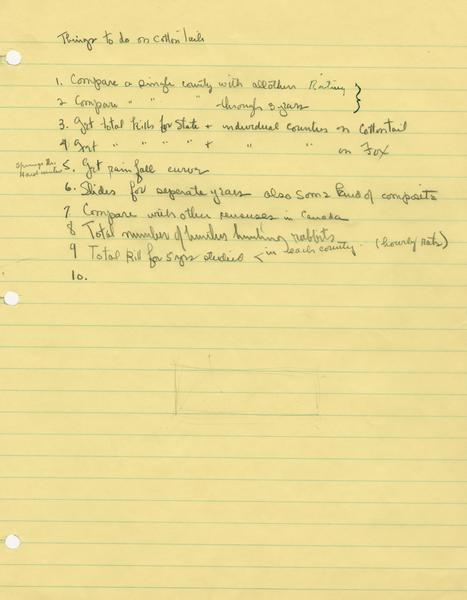 Things to do on cottontails
1. Compare a single county with all others Rating
2 Compare " " " through 3 years
3. Get total kills for State + individual counties on Cottontail
4 Get " " " " + " " on Fox
5. Get rain fall curves
6. Slides for seperate years also some kind of composite
7 Compare with other in Canada
8 Total number of hunters hunting rabbits
9 Total Kill for 5 yrs studied < in each county. (hourly rate)
10.